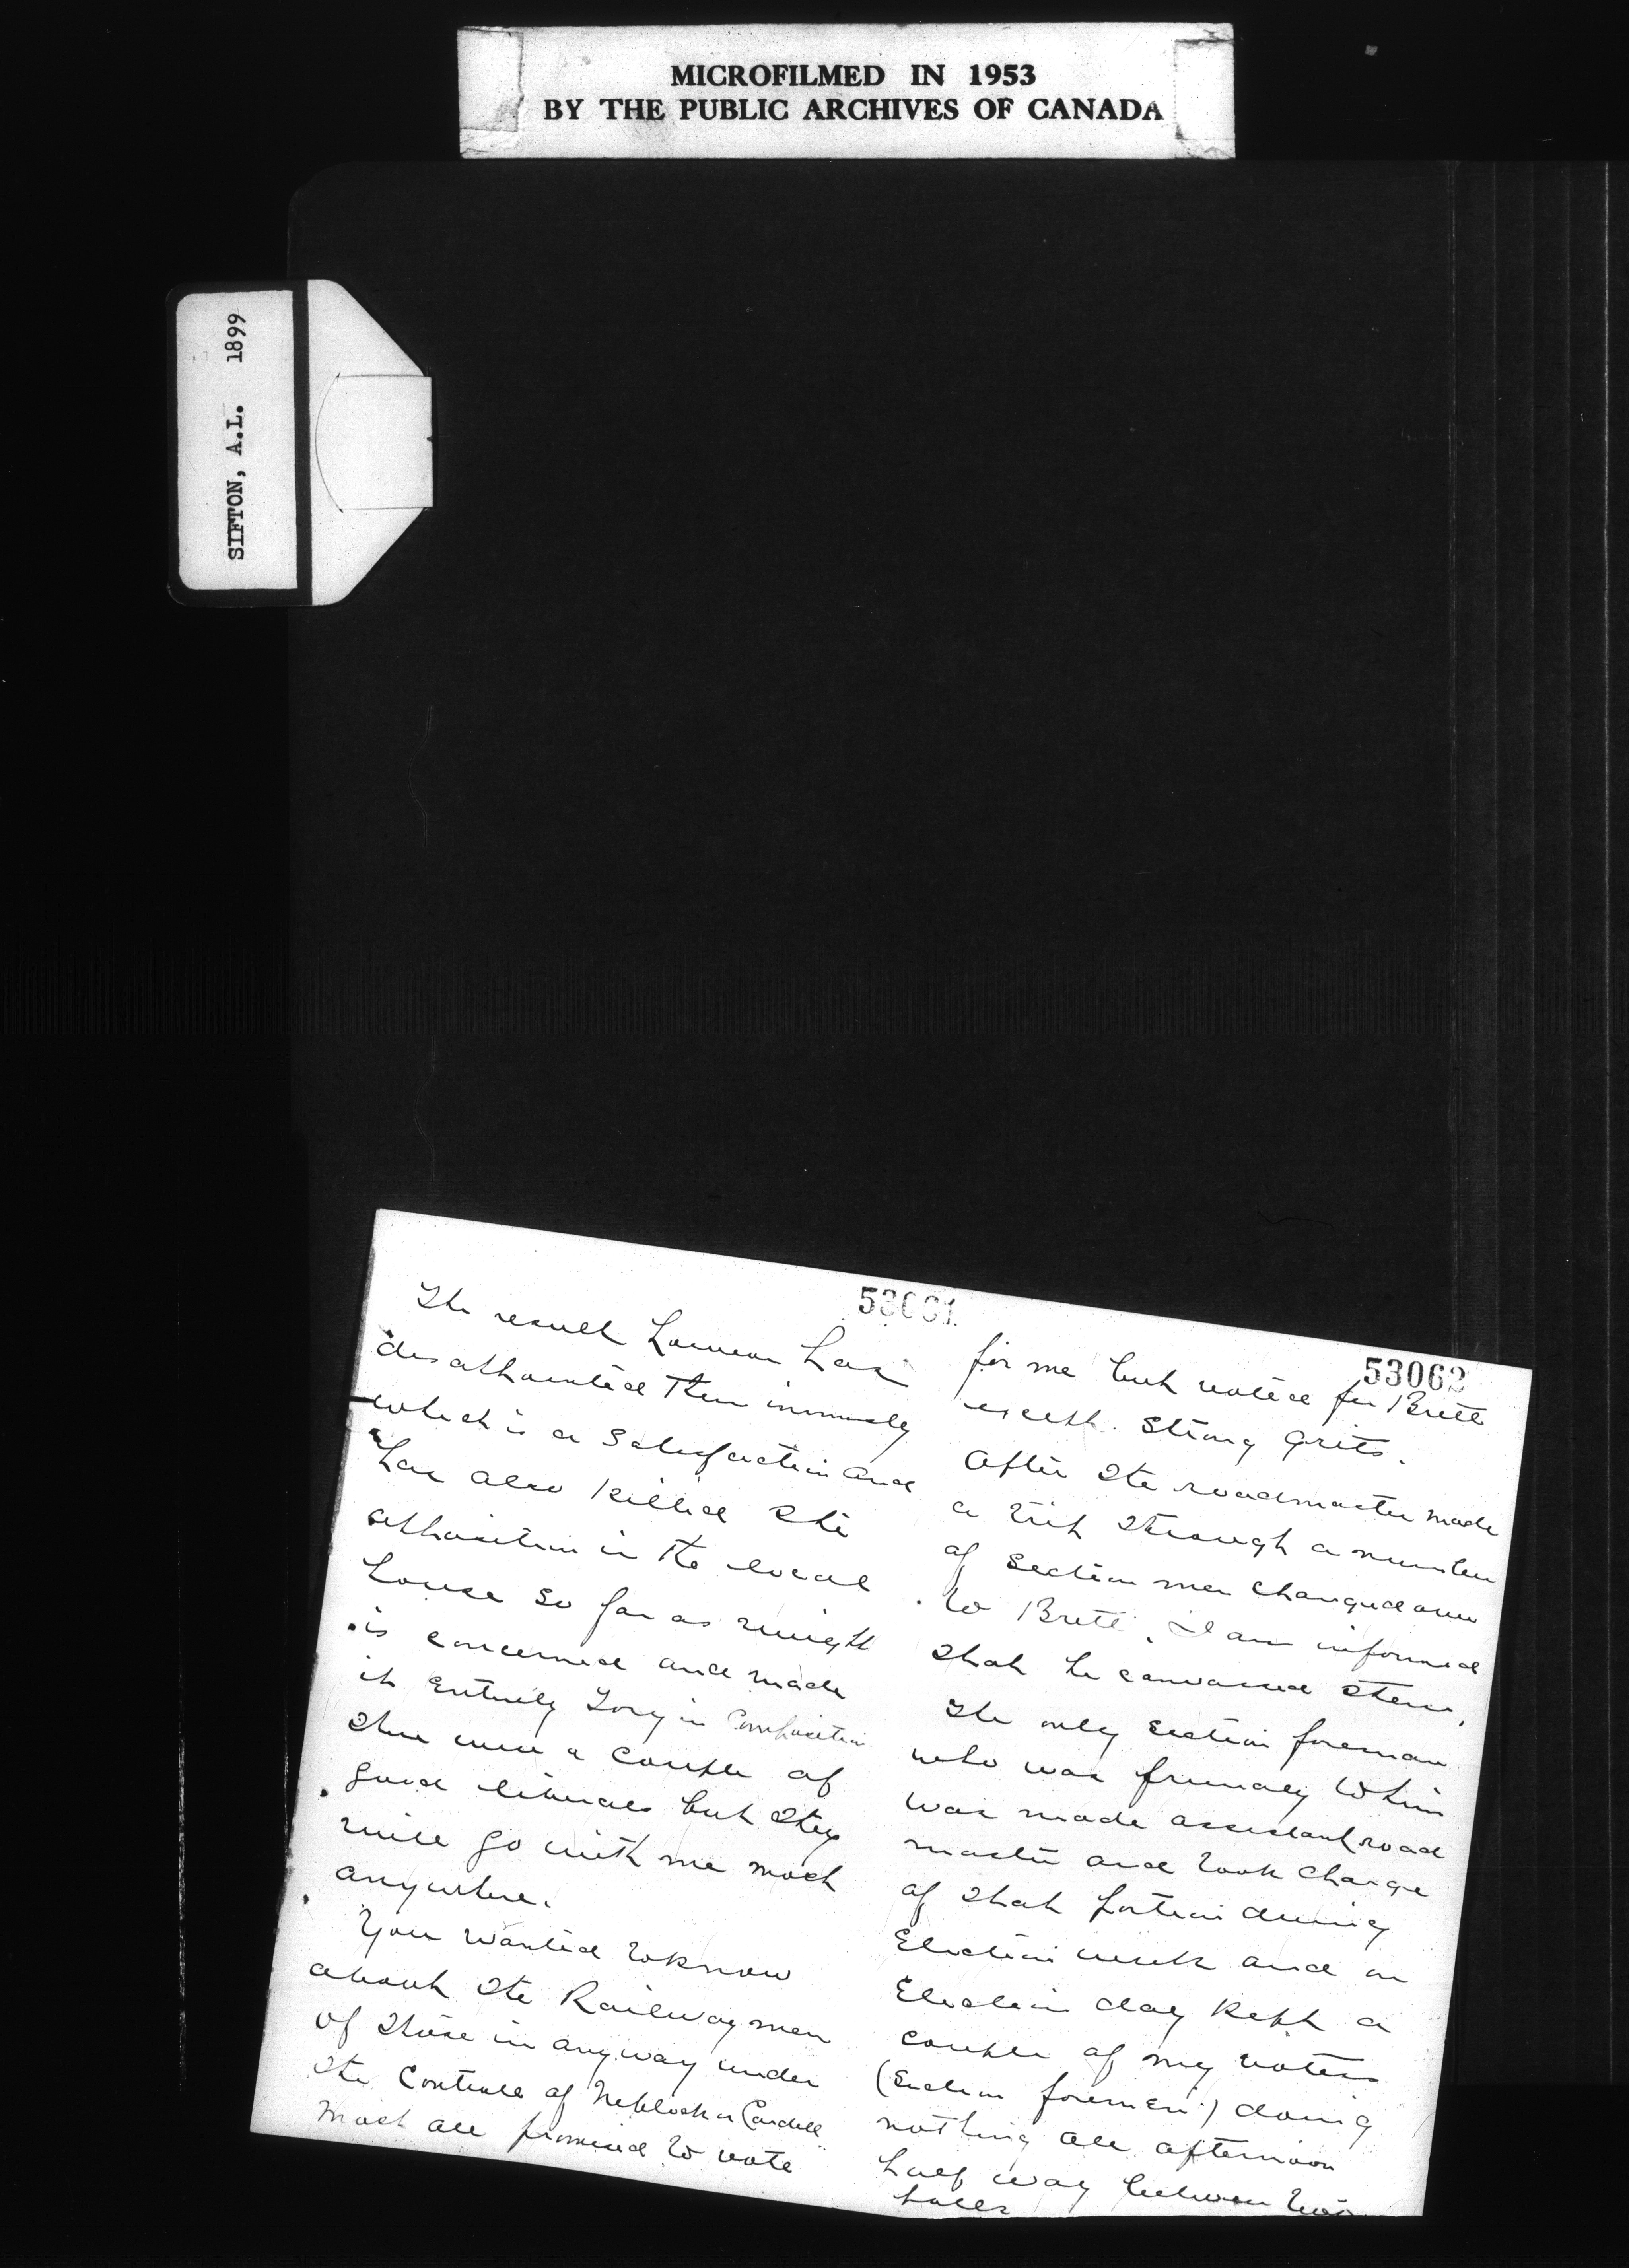 MICROFILMED IN 1953
BY THE PUBLIC ARCHIVES OF CANADA
SIFTON, A.L. 1899
53061
The result however has
disappointed them immensely
which is a satisfaction and
has also killed the
opposition in the local
house so far as might
is concerned and made
it entirely Tory in composition
There were a couple of
good liberals but they
will go with me most
anywhere.
You wanted to know
about the Railway men
of those in any way under
the Controll of Niblock or Cardell
most all promised to vote
53062
for me but voted for Brett
except strong grits.
After the roadmaster made
a trip through a number
of section men changed over
to Brett. I am informed
that he canvassed them.
The only section foreman
who was friendly to him
was made assistant road
master and took charge
of that portion during
Election week and on
Election day kept a
couple of my voters
(Section foremen) doing
nothing all afternoon
half way between two
polls